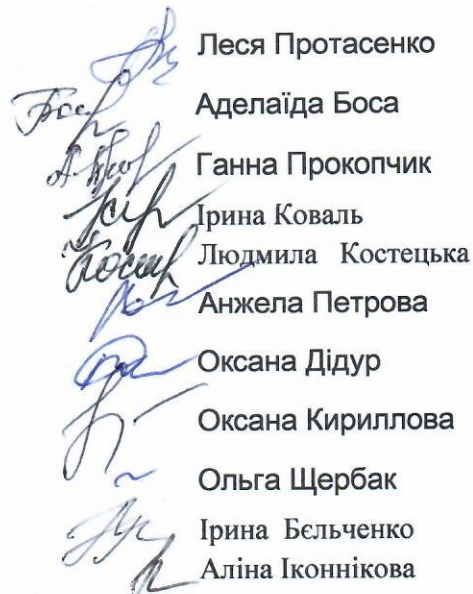 Леся Протасенко
Аделаїда Боса
Ганна Прокопчик
Ірина Коваль
Людмила Костецька
Анжела Петрова
Оксана Дідур
Оксана Кириллова
Ольга Щербак
Ірина Бєльченко
Аліна Іконнікова